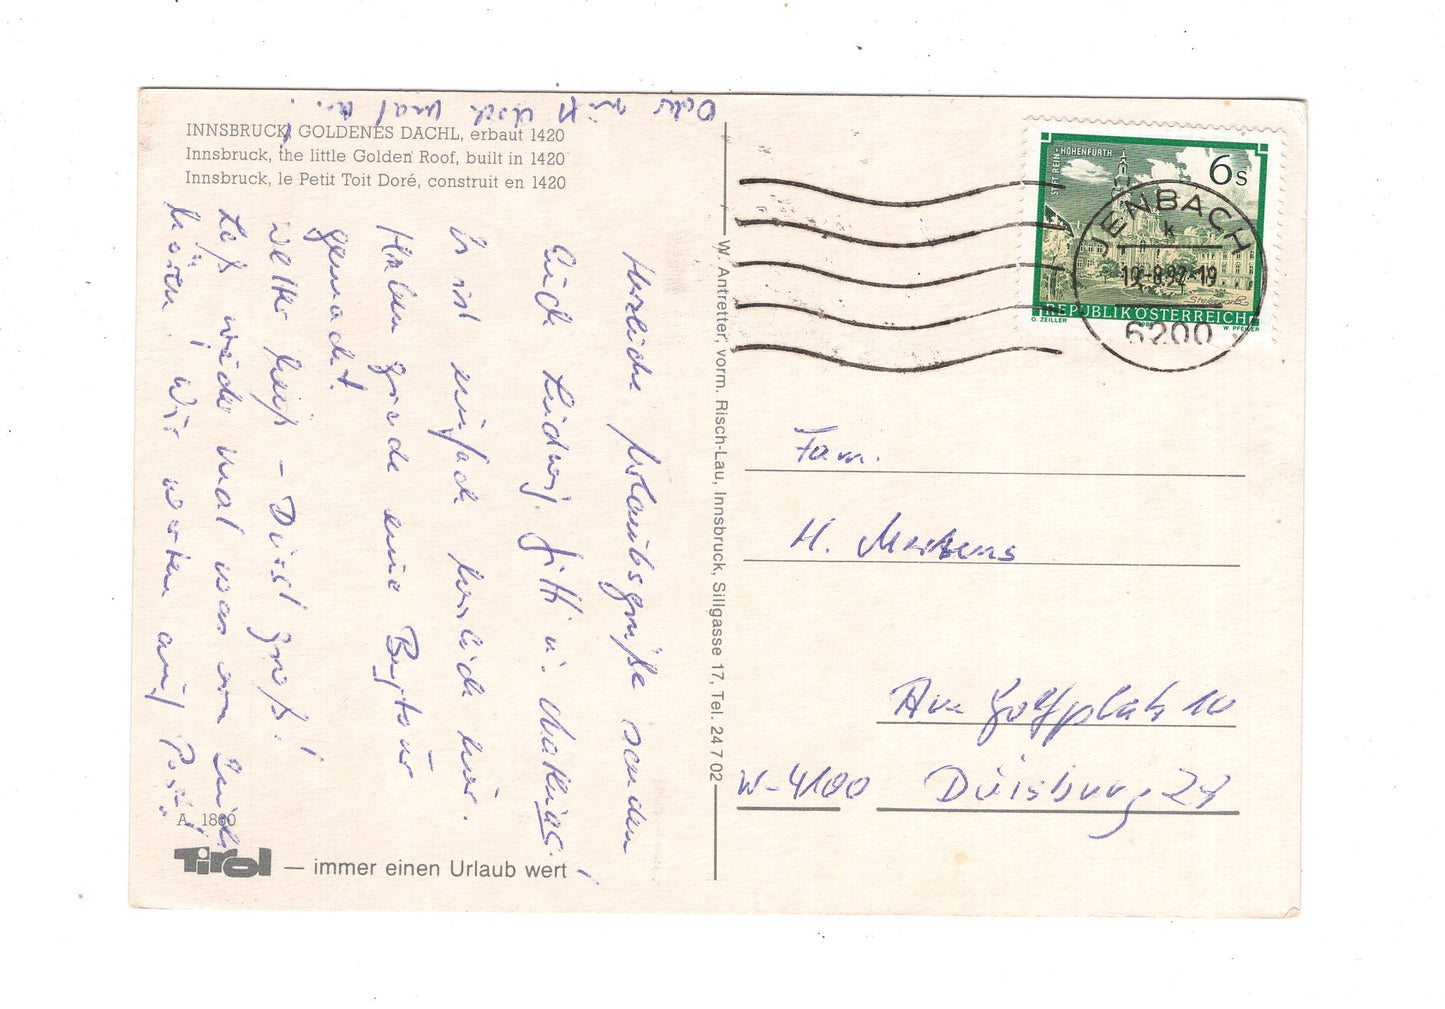 INNSBRUCK, GOLDENES DACHL, erbaut 1420
Innsbruck, the little Golden Roof, built in 1420
Innsbruck, le Petit Toit Doré, construit en 1420
Herzliche Urlaubsgrüße senden
Euch Ludwig, Gitti u. Mathias!
Es ist einfach herrlich hier.
Haben grade eine Bergtour
gemacht.
Wetter heiß - Durst groß!
Laßt wieder mal was von Euch
hören! Wir warten auf Post!
Oder ruft doch mal an!
A 1860
Tirol — immer einen Urlaub wert
W. Antretter, vorm. Risch-Lau, Innsbruck, Sillgasse 17, Tel. 24 7 02
STIFT REIN-HOHENFURTH
6 S
REPUBLIK ÖSTERREICH
O. ZEILLER
W. PFEILER
JENBACH
k
19.-8.92-19
6200
Fam.
H. Mertens
Am Golfplatz 10
W-4100 Duisburg 28